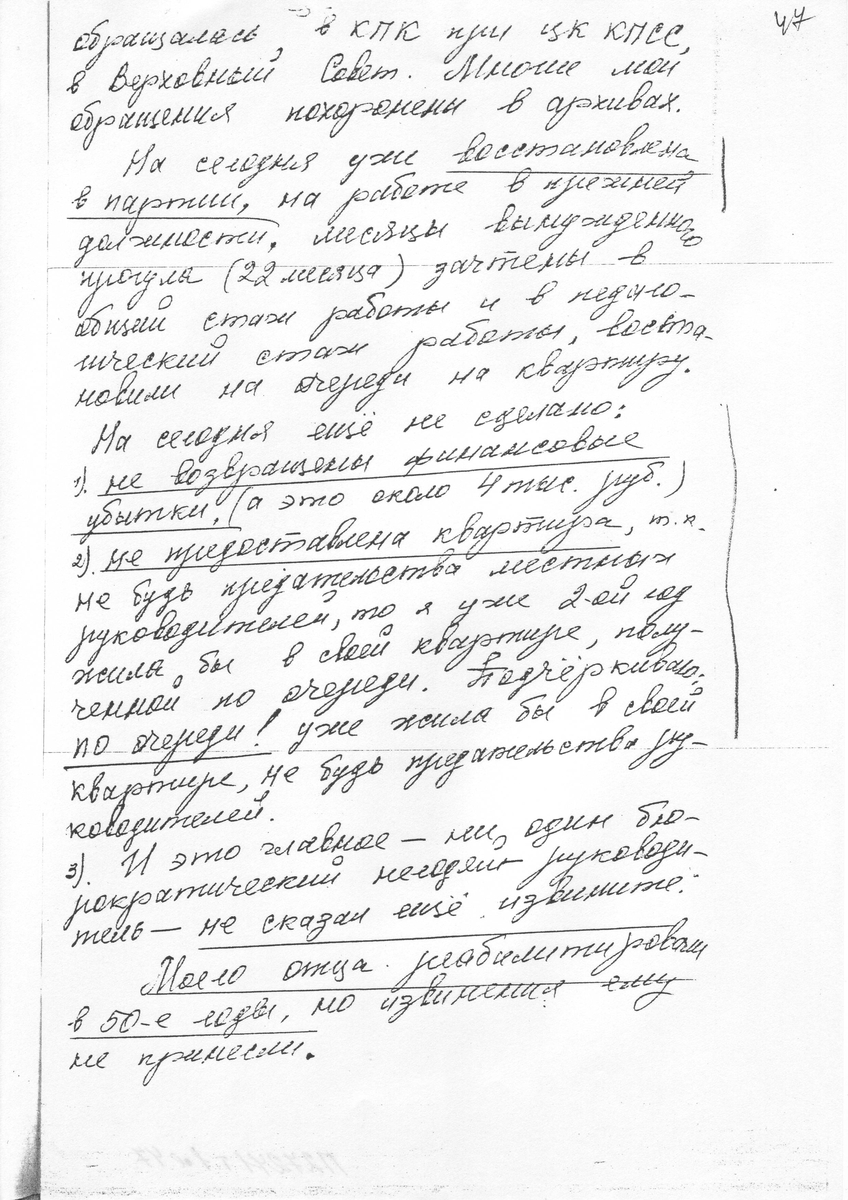 47
обращалась, в КПК при ЦК КПСС,
в Верховный Совет. Многие мои
обращения похоронены в архивах.
На сегодня уже восстановлена
в партии, на работе в прежней
должности, месяцы вынужденного
прогула (22 месяца) зачтены в
общий стаж работы и в педаго-
гический стаж работы, восста-
новили на очереди на квартиру.
На сегодня ещё не сделано:
1). не возвращены финансовые
убытки, (а это около 4 тыс. руб.)
2). не предоставлена квартира, т.к.
не будь предательства местных
руководителей, то я уже 2-ой год
жила бы в своей квартире, полу-
ченной по очереди. Подчёркиваю:
по очереди! уже жила бы в своей
квартире, не будь предательства ру-
ководителей.
3). И это главное – ни один бю-
рократический негодяй руководи-
тель – не сказал ещё "извините".
Моего отца реабилитировали
в 50-е годы, но извинения ему
не принесли.